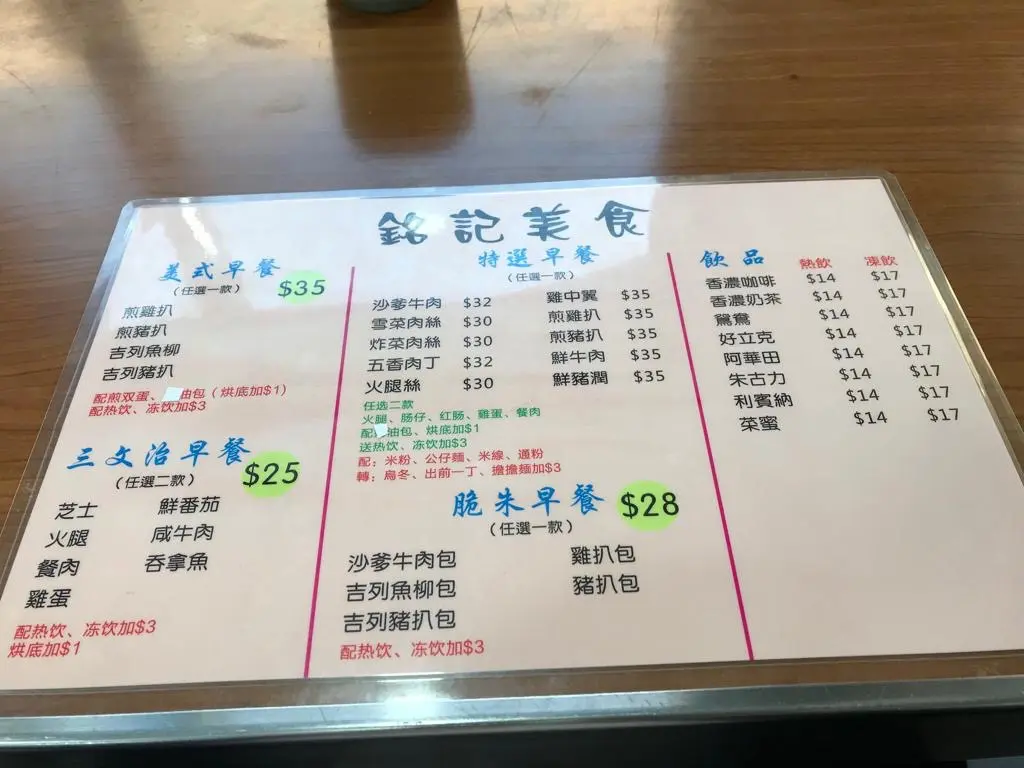 銘記美食
美式早餐
（任選一款） $35
煎雞扒
煎豬扒
吉列魚柳
吉列豬扒
配煎双蛋、油包（烘底加$1）
配热饮、冻饮加$3
三文治早餐
（任選二款） $25
芝士 鮮番茄
火腿 咸牛肉
餐肉 吞拿魚
雞蛋
配热饮、冻饮加$3
烘底加$1
特選早餐
（任選一款）
沙爹牛肉 $32 雞中翼 $35
雪菜肉絲 $30 煎雞扒 $35
炸菜肉絲 $30 煎豬扒 $35
五香肉丁 $32 鮮牛肉 $35
火腿絲 $30 鮮豬潤 $35
任选二款
火腿、肠仔、红肠、雞蛋、餐肉
配油包、烘底加$1
送热饮、冻饮加$3
配：米粉、公仔麵、米線、通粉
轉：烏冬、出前一丁、擔擔麵加$3
脆朱早餐
（任選一款） $28
沙爹牛肉包 雞扒包
吉列魚柳包 豬扒包
吉列豬扒包
配热饮、冻饮加$3
飲品 熱飲 凍飲
香濃咖啡 $14 $17
香濃奶茶 $14 $17
鴛鴦 $14 $17
好立克 $14 $17
阿華田 $14 $17
朱古力 $14 $17
利賓納 $14 $17
菜蜜 $14 $17